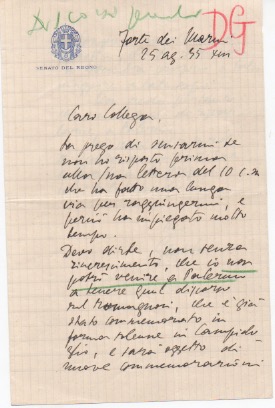 DG
SENATO DEL REGNO
Forte dei Marmi
25 ag. 35 XIII
Caro Collega,
La prego di scusarmi se
non ho risposto prima
alla Sua lettera del 10 c.m.
che ha fatto una lunga
via per raggiungermi, e
perciò ha impiegato molto
tempo.
Devo dirle, non senza
rincrescimento, che io non
potrò venire a Palermo
a tenere quel discorso
sul Romagnosi, che è già
stato commemorato in
forma solenne in Campido
glio, e sarà oggetto di
nuove commemorazioni